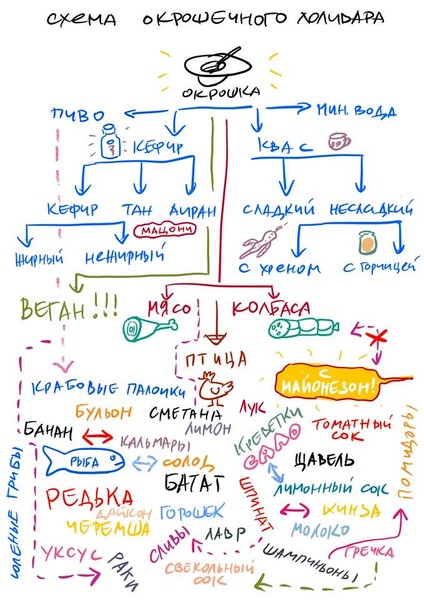 СХЕМА ОКРОШЕЧНОГО ХОЛИВАРА
ОКРОШКА
ПИВО
МИН. ВОДА
КЕФИР
КВАС
КЕФИР ТАН АЙРАН
МАЦОНИ
СЛАДКИЙ НЕСЛАДКИЙ
ЖИРНЫЙ НЕЖИРНЫЙ
С ХРЕНОМ С ГОРЧИЦЕЙ
ВЕГАН!!!
МЯСО КОЛБАСА
ПТИЦА
С МАЙОНЕЗОМ!
КРАБОВЫЕ ПАЛОЧКИ
БУЛЬОН СМЕТАНА ЛУК
ЛИМОН
БАНАН КАЛЬМАРЫ
КРЕВЕТКИ
ТОМАТНЫЙ СОК
САЛО
РЫБА СОЛОД
ЩАВЕЛЬ
ПОМИДОРЫ
СОЛЕНЫЕ ГРИБЫ
БАТАТ
ЛИМОННЫЙ СОК
РЕДЬКА
ДАЙКОН
ГОРОШЕК
ШПИНАТ
КИНЗА
ЧЕРЕМША
МОЛОКО
УКСУС
РАКИ
СЛИВЫ
ЛАВР
ШАМПИНЬОНЫ
ГРЕЧКА
СВЕКОЛЬНЫЙ СОК